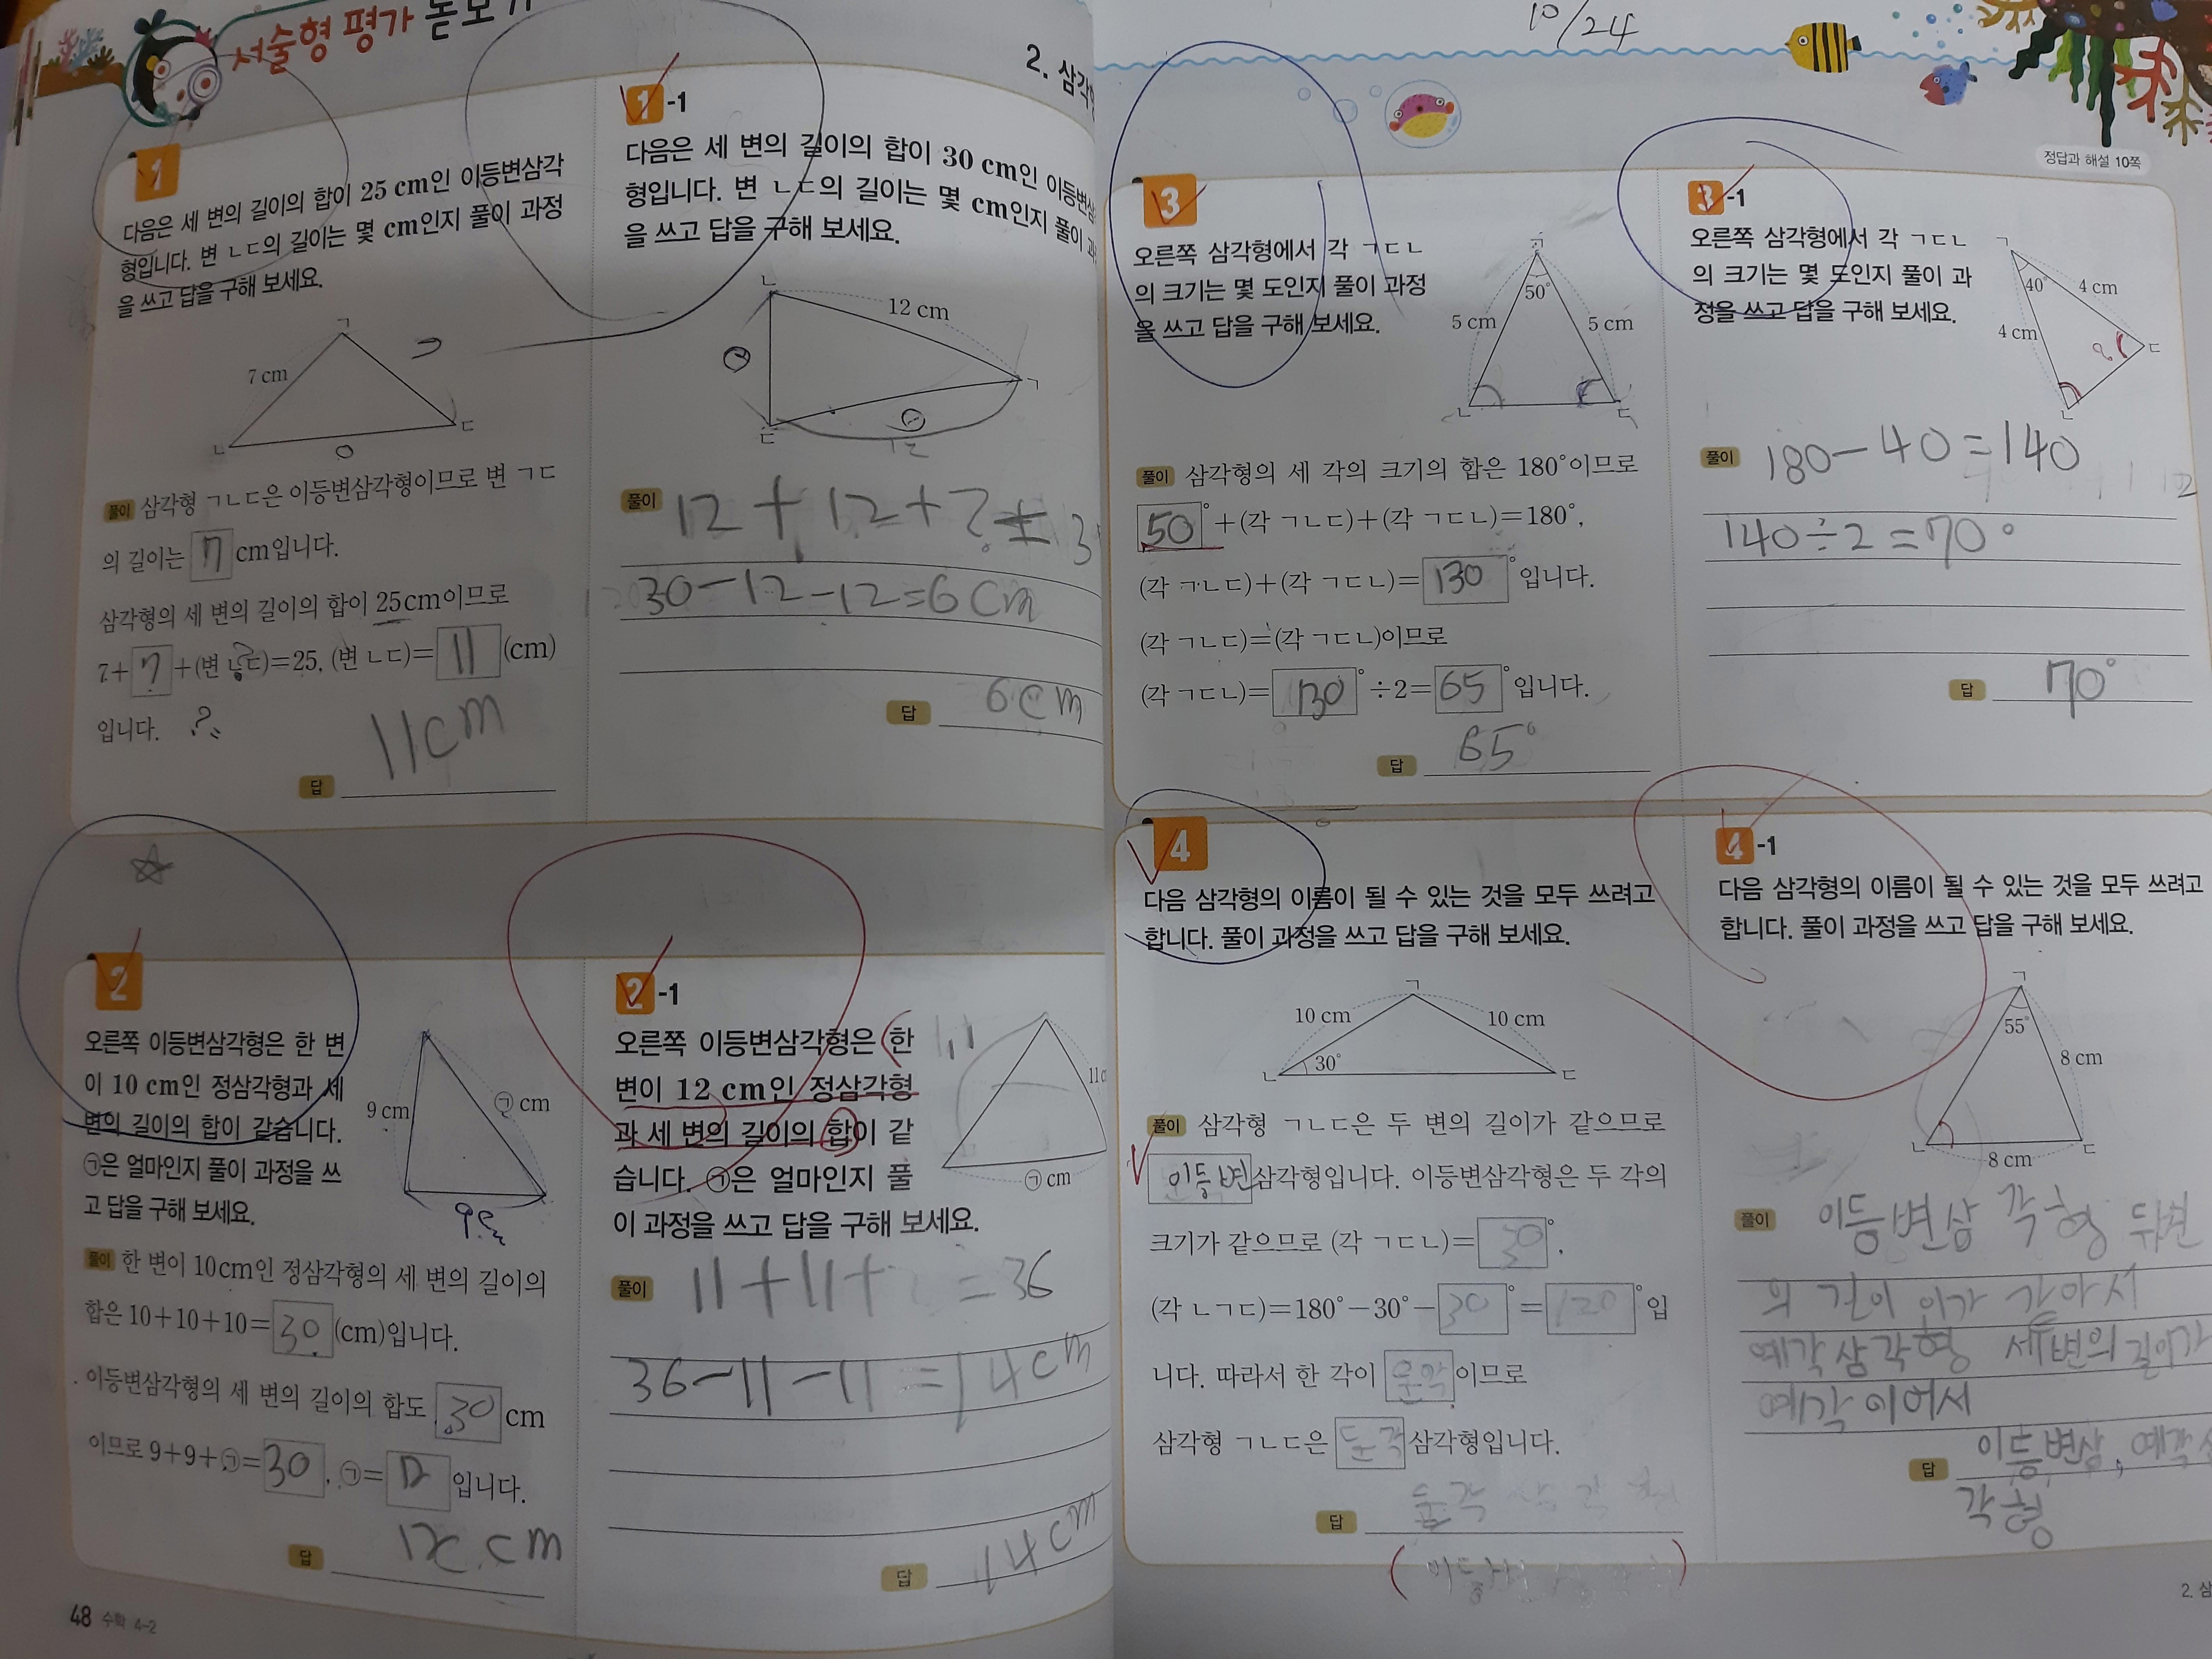 서술형 평가 돋보기
2. 삼각
1
다음은 세 변의 길이의 합이 25 cm인 이등변삼각
형입니다. 변 ㄴㄷ의 길이는 몇 cm인지 풀이 과정
을 쓰고 답을 구해 보세요.
ㄱ
7 cm
ㄴ
ㄷ
풀이 삼각형 ㄱㄴㄷ은 이등변삼각형이므로 변 ㄱㄷ
의 길이는 7 cm입니다.
삼각형의 세 변의 길이의 합이 25cm이므로
7+ 7 +(변 ㄴㄷ)=25, (변 ㄴㄷ)= 11 (cm)
입니다. ?
답 11cm
1-1
다음은 세 변의 길이의 합이 30 cm인 이등변삼
형입니다. 변 ㄴㄷ의 길이는 몇 cm인지 풀이 과
을 쓰고 답을 구해 보세요.
ㄴ
12 cm
ㄱ
ㄷ
12
풀이 12+12+?=3
30-12-12=6cm
답 6cm
2
오른쪽 이등변삼각형은 한 변
이 10 cm인 정삼각형과 세
변의 길이의 합이 같습니다.
㉠은 얼마인지 풀이 과정을 쓰
고 답을 구해 보세요.
9 cm
㉠ cm
풀이 한 변이 10cm인 정삼각형의 세 변의 길이의
합은 10+10+10= 30 (cm)입니다.
이등변삼각형의 세 변의 길이의 합도 30 cm
이므로 9+9+㉠= 30 , ㉠= 12 입니다.
답 12 cm
2-1
오른쪽 이등변삼각형은 한
변이 12 cm인 정삼각형
과 세 변의 길이의 합이 같
습니다. ㉠은 얼마인지 풀
이 과정을 쓰고 답을 구해 보세요.
11c
㉠ cm
풀이 11+11+ =36
36-11-11=14cm
답 14cm
48 수학 4-2
10/24
정답과 해설 10쪽
3
오른쪽 삼각형에서 각 ㄱㄷㄴ
의 크기는 몇 도인지 풀이 과정
을 쓰고 답을 구해 보세요.
ㄱ
50°
5 cm
5 cm
ㄴ
ㄷ
풀이 삼각형의 세 각의 크기의 합은 180°이므로
50 °+(각 ㄱㄴㄷ)+(각 ㄱㄷㄴ)=180°,
(각 ㄱㄴㄷ)+(각 ㄱㄷㄴ)= 130 °입니다.
(각 ㄱㄴㄷ)=(각 ㄱㄷㄴ)이므로
(각 ㄱㄷㄴ)= 130 °÷2= 65 °입니다.
답 65°
3-1
오른쪽 삼각형에서 각 ㄱㄷㄴ
의 크기는 몇 도인지 풀이 과
정을 쓰고 답을 구해 보세요.
ㄱ
40°
4 cm
4 cm
ㄷ
ㄴ
풀이 180-40=140
140÷2=70°
답 70°
4
다음 삼각형의 이름이 될 수 있는 것을 모두 쓰려고
합니다. 풀이 과정을 쓰고 답을 구해 보세요.
ㄱ
10 cm
10 cm
30°
ㄴ
ㄷ
풀이 삼각형 ㄱㄴㄷ은 두 변의 길이가 같으므로
이등변 삼각형입니다. 이등변삼각형은 두 각의
크기가 같으므로 (각 ㄱㄷㄴ)= 30 °,
(각 ㄴㄱㄷ)=180°-30°- 30 °= 120 °입
니다. 따라서 한 각이 둔각 이므로
삼각형 ㄱㄴㄷ은 둔각 삼각형입니다.
답 둔각삼각형
4-1
다음 삼각형의 이름이 될 수 있는 것을 모두 쓰려고
합니다. 풀이 과정을 쓰고 답을 구해 보세요.
ㄱ
55°
8 cm
ㄴ
ㄷ
8 cm
풀이 이등변삼각형
의 같아서
예각삼각형 세변의 길이가
예각이어서
답 이등변삼, 예각삼
각형
2. 삼